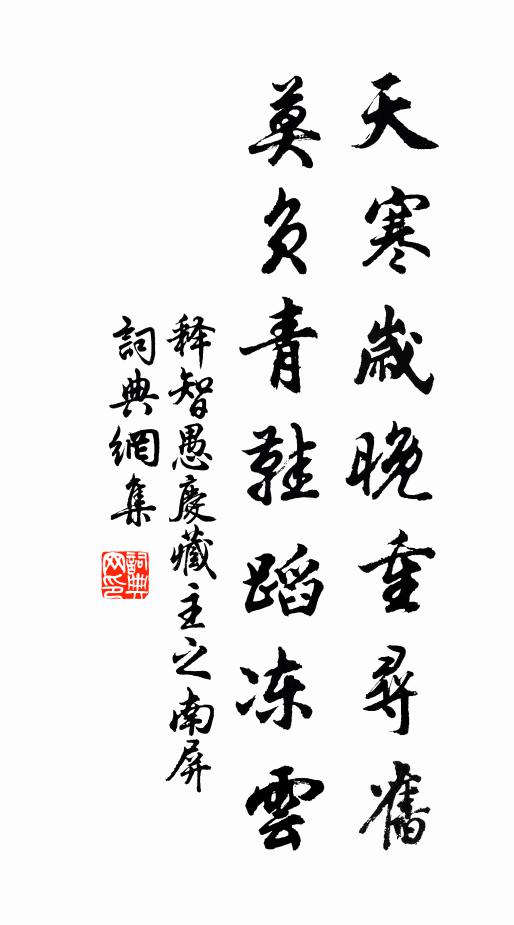 天寒歲晚重尋舊
莫負青鞋蹈冻雲
释智愚慶藏主之南屏
詞典網集
詞典网印